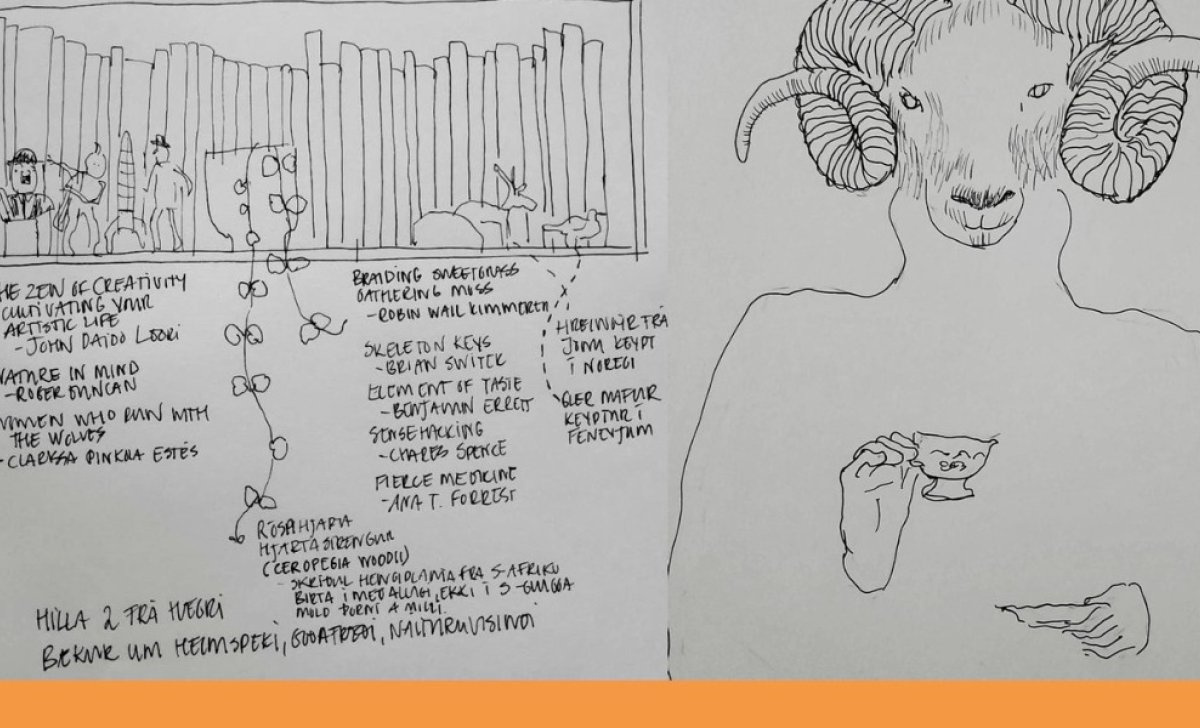 HE ZEN OF CREATIVITY
CULTIVATING YOUR
ARTISTIC LIFE
- JOHN DAIDO LOORI
NATURE IN MIND
- ROGER DUNCAN
WOMEN WHO RUN WITH
THE WOLVES
- CLARYSSA PINKNA ESTÉS
BRAIDING SWEETGRASS
GATHERING MOSS
- ROBIN WAIL KIMMERER
SKELETON KEYS
- BRIAN SWITEK
ELEMENT OF TASTE
- BENJAMIN ERRETT
SENSEHACKING
- CHARES SPENCE
FIERCE MEDICINE
- ANA T. FORREST
HREINNIR FRÁ
JONU KEYPT
Í NOREGI
GLER MAFUR
KEYPTUR Í
FENEYJUM
RÓSAHJARTA
HJARTASTRENGUR
(CEROPEGIA WOODII)
- SKRIÐUL HENGIPLANTA FRA S-AFRIKU
BIRTA Í MEÐALLAGI, EKKI Í S-GLUGGA
MOLD ÞORNI A MILLI.
HILLA 2 FRÁ HÆGRI
BÆKUR UM HEIMSPEKI, GOÐAFRÆÐI, NÁTTÚRUVÍSINDI